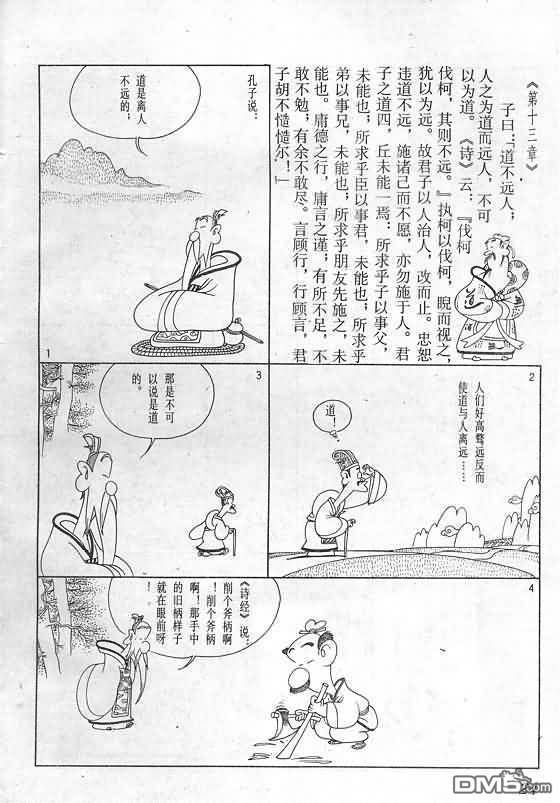 《第十三章》
子曰：「道不远人；
人之为道而远人，不可
以为道。《诗》云：『伐柯
伐柯，其则不远。』执柯以伐柯，睨而视之，
犹以为远。故君子以人治人，改而止。忠恕
违道不远，施诸己而不愿，亦勿施于人。君
子之道四，丘未能一焉：所求乎子以事父，
未能也；所求乎臣以事君，未能也；所求乎
弟以事兄，未能也；所求乎朋友先施之，未
能也。庸德之行，庸言之谨；有所不足，不
敢不勉，有余不敢尽。言顾行，行顾言，君
子胡不慥慥尔！」
道
孔子说：
道是离人
不远的；
1
2
人们好高骛远反而
使道与人离远……
道！
3
那是不可
以说是道
的。
4
《诗经》说：
削个斧柄啊
！削个斧柄
啊！那手中
的旧柄样子
就在眼前呀
！
DM5.com